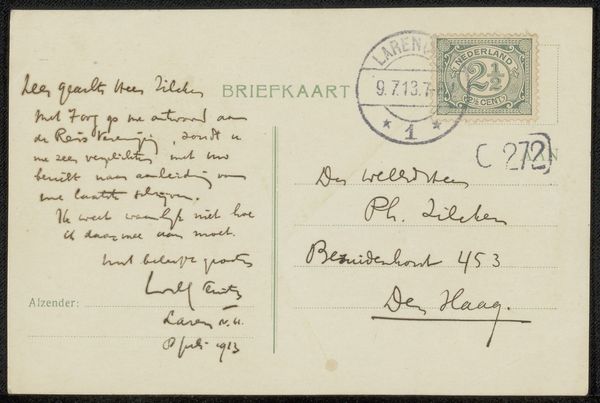 Zeer geachte Heer Zilcken
Met zorg op me antwoord aan
de Reis Vereeniging, zoudt u
me zeer verplichten met uw
bericht naar aanleiding van
me laatste schrijven.
Ik weet waarlijk niet hoe
ik daarmee aan moet.
met beleefde groeten
Alzender:
Laren N.H.
8 Juli 1913
BRIEFKAART
LAREN
9.7.13.7-
1
NEDERLAND
2½
(2½ CENT)
C 272
AAN
Den WelEd Heer
Ph. Zilcken
Bezuidenhout 453
Den Haag.